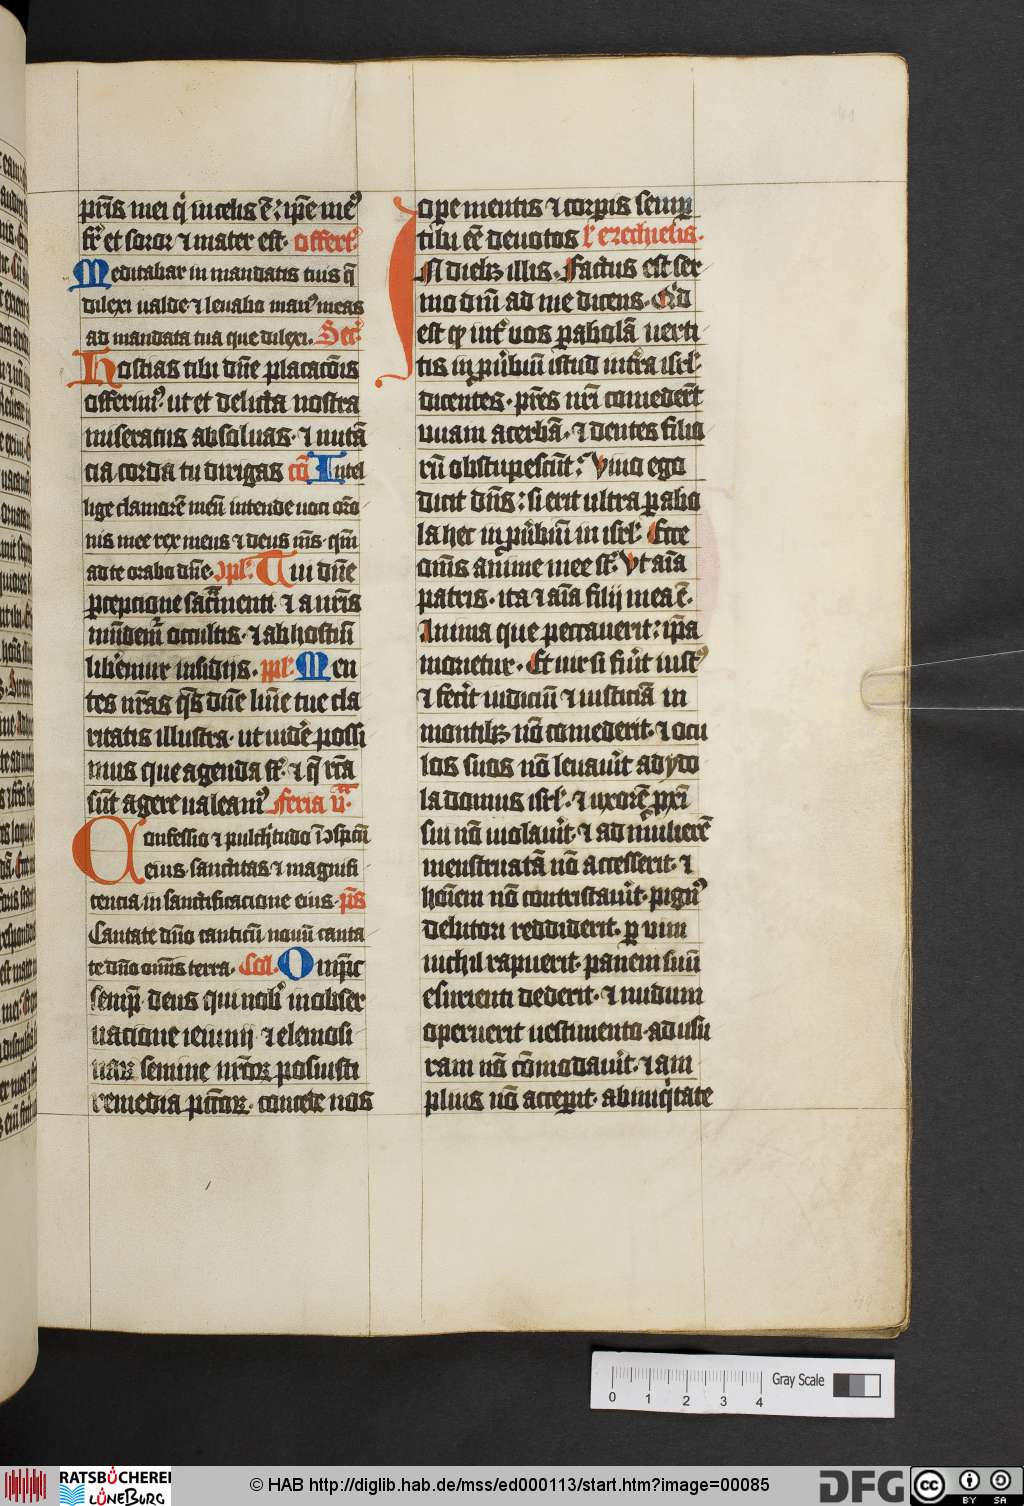 pr̄is mei q̇ in celis ē: ip̄e me⁹
fr̄ et soror ⁊ mater est· offert᷒
Meditabar in mandatis tuis q̄
dilexi ualde ⁊ leuabo man⁹ meas
ad mandata tua que dilexi. Sec᷒
Hostias tibi dn̄e placac̄ois
offerim⁹· ut et delicta nostra
miseratus absoluas· ⁊ nutā
cia corda tu dirigas cō Intel
lige clamorē meū intende uoci or̄o
nis mee rex meus ⁊ deus m̄s· qm̄
ad te orabo dn̄e· ꝯpl᷒ Tui dn̄e
ꝑcepcione sac̄menti· ⁊ a nr̄is
mūdemͬ occultis· ⁊ ab hostiū
lib̾emur insidijs· ppl᷒ Men
tes nr̄as qs̄ dn̄e lūīe tue cla
ritatis illustra· ut uid̾e possi
mus que agenda st᷒· ⁊ q̄ rc̄a
sūt agere ualeam⁹ Feria vͣ
Confessio ⁊ pulch̾tudo ī ꝯspc̄ū
eius· sanctitas ⁊ magnifi
cencia in sanctificacione eius· ps̄
Cantate dn̄o canticū nouū canta
te dn̄o om̄is terra· Col᷒ Omp̄ic
semꝑ deus qui nob̾ in obser
uacione ieiunij ⁊ elemosi
naꝝ semine nr̄oꝝ posuisti
remedia pct̄oꝝ· concede nos
ope mentis ⁊ corpis semꝑ
tibi eē deuotos l᷒ ezechielis·
IN dieb; illis· Factus est ser
mo dnī ad me dicens· Qͥd
est qꝫ int̾ uos ꝑabolā uerti
tis in ꝓu̾biū istud in t̾ra isrl᷒·
dicentes· pr̄es nr̄i comeder̄t
uuam acerbā· ⁊ dentes filio
rū obstupescūt᷒: Viuo ego
dicit dn̄s: si erit ultra ꝑabo
la hec in ꝓu̾biū in isrl᷒· Ecce
om̄s anime mee st᷒· Vt aīa
patris· ita ⁊ aīa filij mea ē·
Anima que peccauerit: ip̄a
morietur· Et uir si fu̾it iust⁹
⁊ fec̾it iudiciū ⁊ iusticiā in
montib; nō comederit· ⁊ ocu
los suos nō leuau̾it ad ydo
la domus isrl᷒· ⁊ uxorē pxī
sui nō uiolau̾it· ⁊ ad mulierē
menstruatā nō accesserit· ⁊
hoīem nō contristau̾it· pign⁹
debitori reddiderit· ꝑ uim
nichil rapuerit· panem suū
esurienti dederit· ⁊ nudum
operuerit uestimento· ad usu
ram nō cōmodau̾it· ⁊ am
plius nō acceꝑit· ab iniqͥtate
Gray Scale
0 1 2 3 4
RATSBÜCHEREI
LÜNEBURG
© HAB http://diglib.hab.de/mss/ed000113/start.htm?image=00085
DFG
cc BY SA